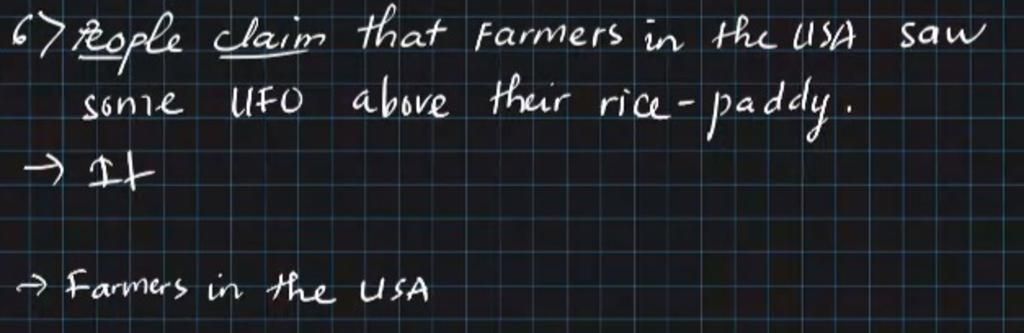 6) People claim that Farmers in the USA saw
some UFO above their rice-paddy.
→ It
→ Farmers in the USA